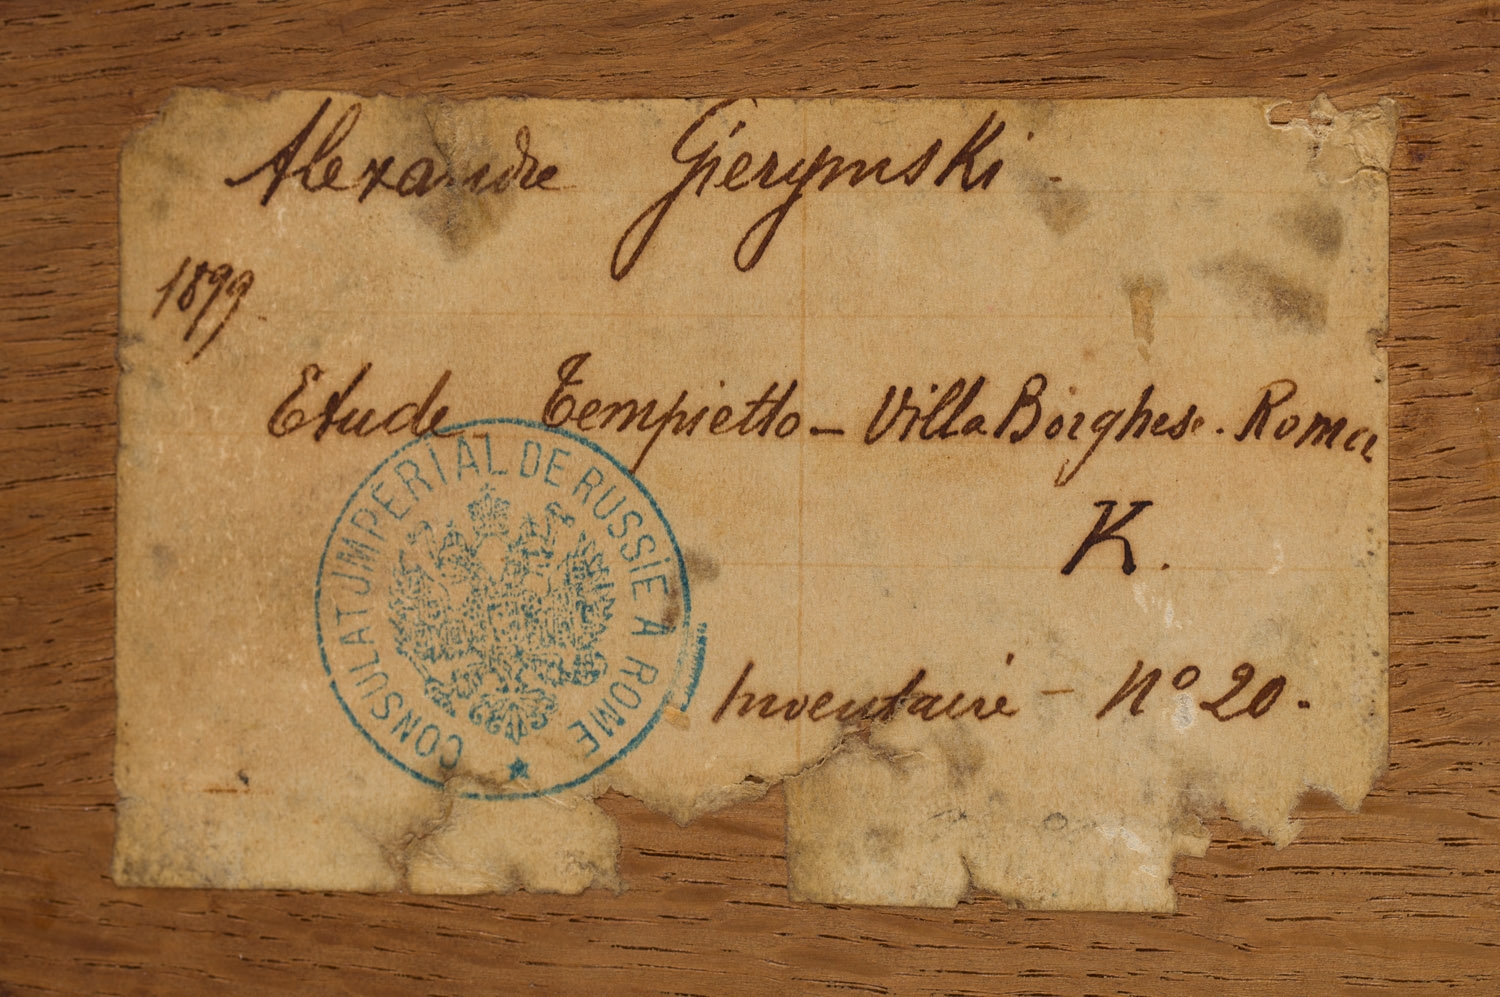 Alexandre Gierymski -
1899.
Etude Tempietto - Villa Borghese. Roma
K.
CONSULAT IMPERIAL DE RUSSIE A ROME
Inventaire - No 20.